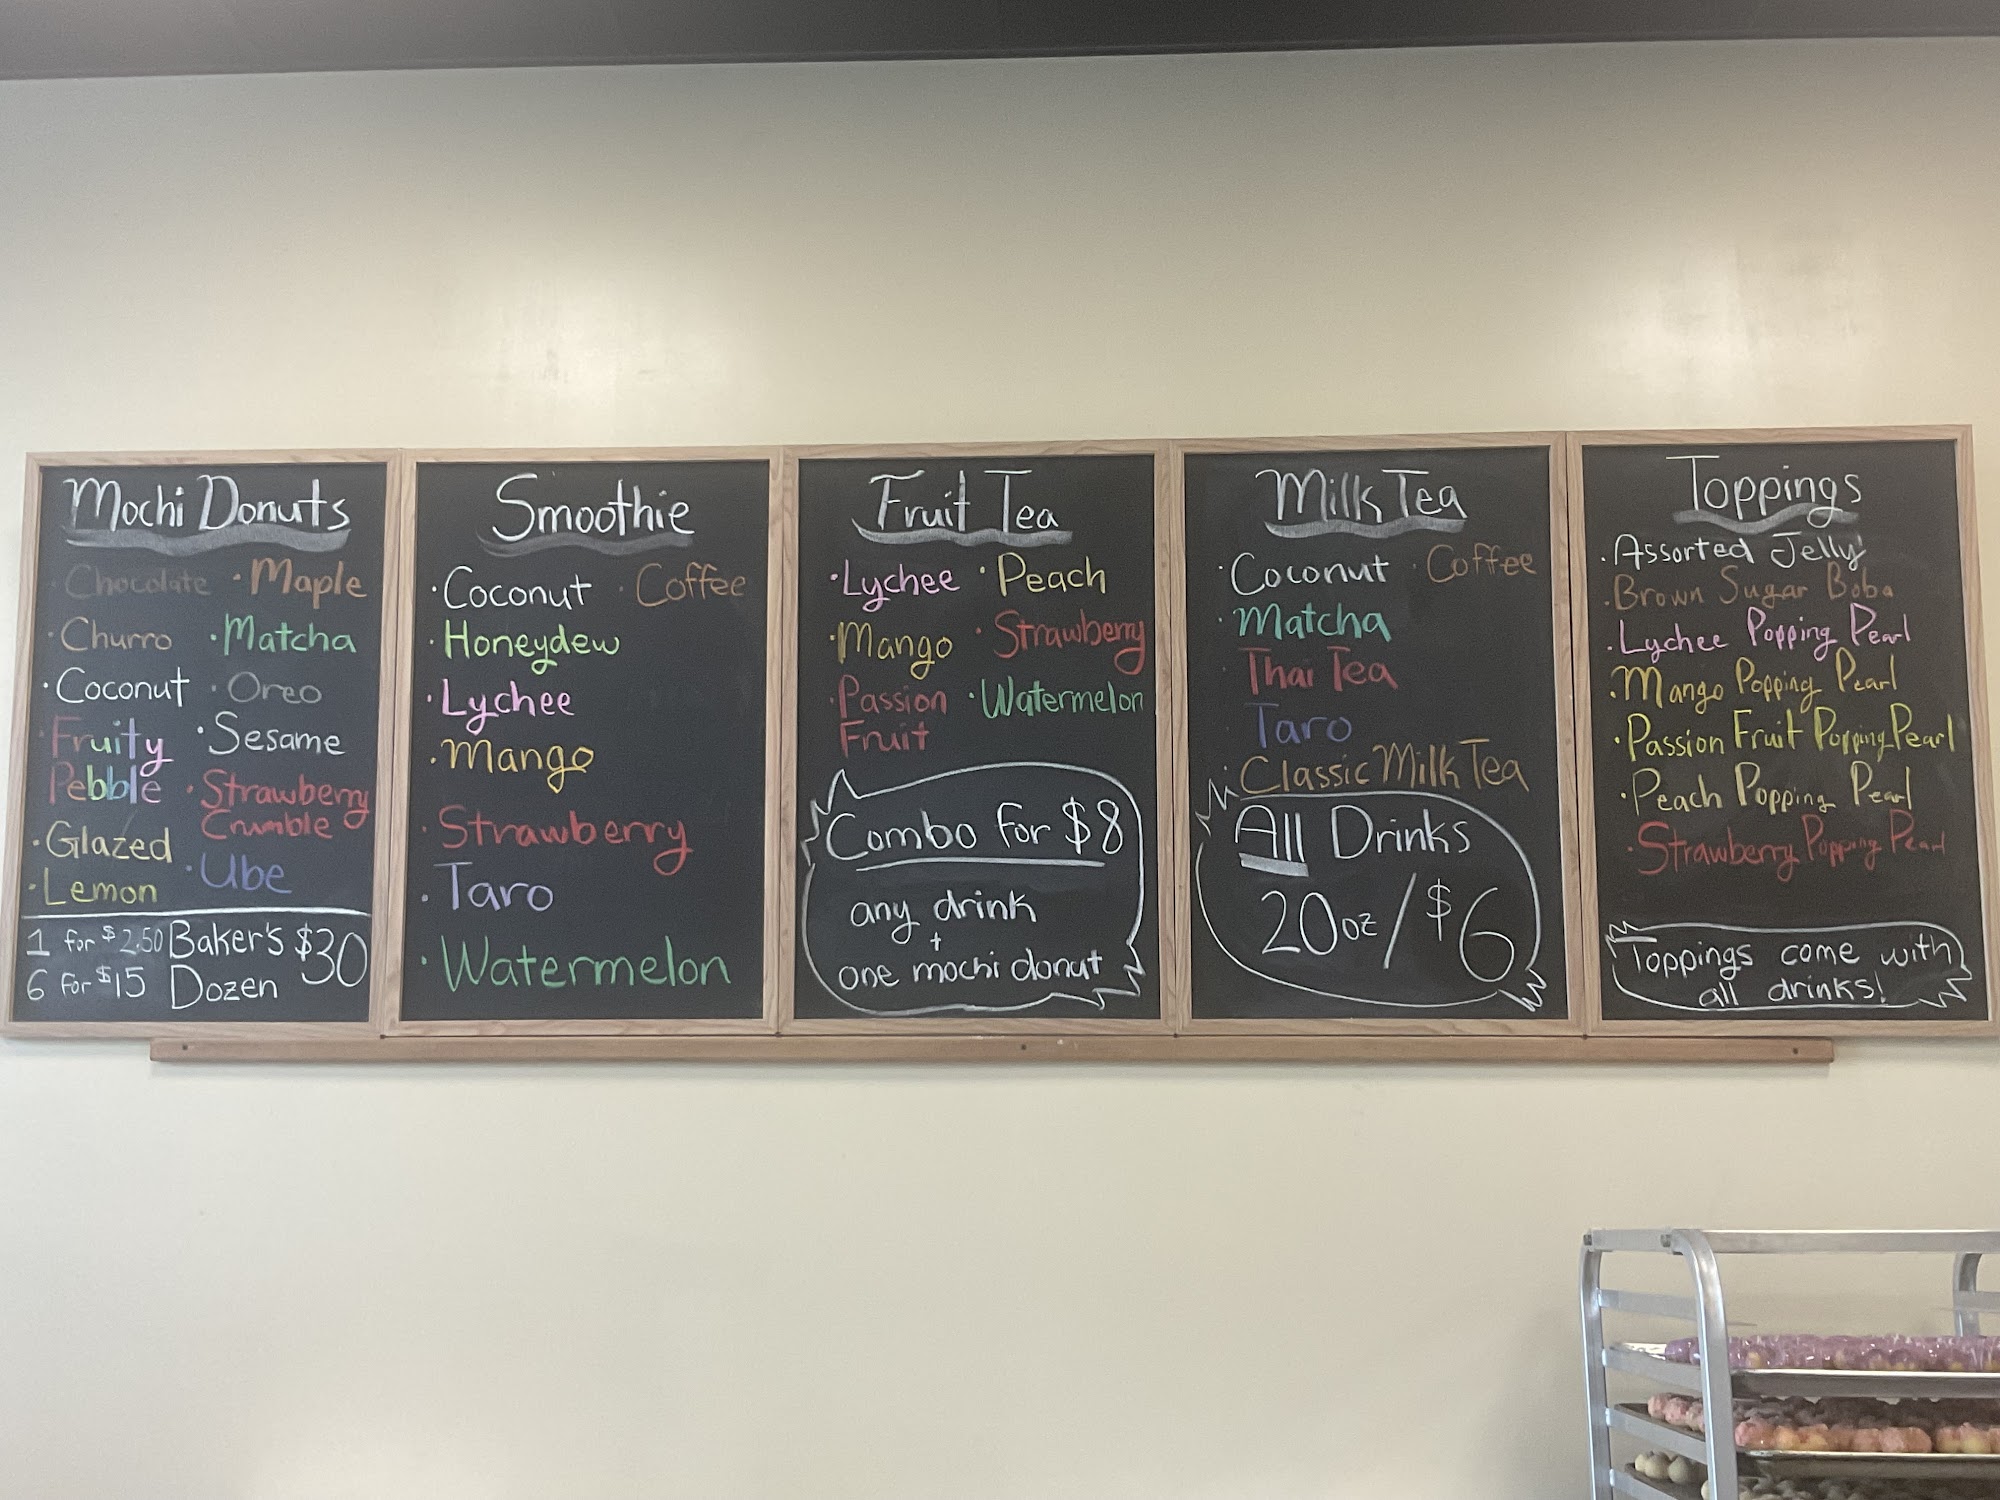 Mochi Donuts
· Chocolate · Maple
· Churro · Matcha
· Coconut · Oreo
· Fruity Pebble · Sesame
· Strawberry Crumble
· Glazed · Ube
· Lemon
1 for $2.50
6 for $15
Baker's Dozen $30
Smoothie
· Coconut · Coffee
· Honeydew
· Lychee
· Mango
· Strawberry
· Taro
· Watermelon
Fruit Tea
· Lychee · Peach
· Mango · Strawberry
· Passion · Watermelon
Fruit
Combo for $8
any drink
+
one mochi donut
Milk Tea
· Coconut · Coffee
· Matcha
· Thai Tea
· Taro
· Classic Milk Tea
All Drinks
20oz/$6
Toppings
· Assorted Jelly
· Brown Sugar Boba
· Lychee Popping Pearl
· Mango Popping Pearl
· Passion Fruit Popping Pearl
· Peach Popping Pearl
· Strawberry Popping Pearl
Toppings come with
all drinks!